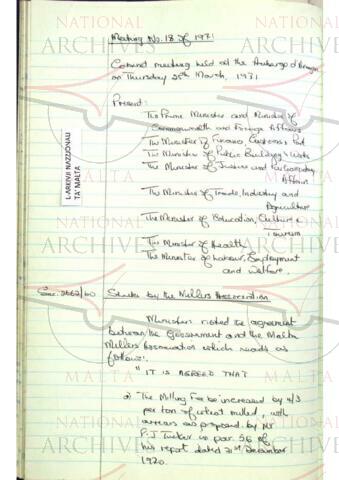 Meeting No. 18 of 1971
Cabinet meeting held at the Auberge d'Aragon
on Thursday 25th March, 1971
Present:
The Prime Minister and Minister of
Commonwealth and Foreign Affairs
The Minister of Finance, Customs & Port
The Minister of Public Building & Works
The Minister of Justice and Parliamentary
Affairs
The Minister of Trade, Industry and
Agriculture
The Minister of Education, Culture &
Tourism
The Minister of Health
The Minister of Labour, Employment
and Welfare.
L-ARKIVJI NAZZJONALI
TA' MALTA
NATIONAL
ARCHIVES
Sec. 2662/60
by the Millers Association
Ministers noted the agreement
between the Government and the Malta
Millers Association which reads as
follows:
"IT IS AGREED THAT
a) The Milling Fee be increased by 4/3
per ton of wheat milled, with
arrears as proposed by Mr
P.J. in par. 56 of
his report dated 21st December
1970.